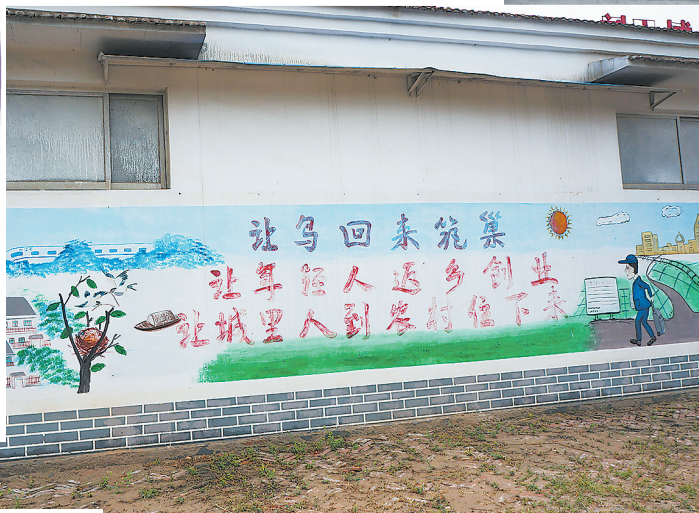 让鸟回来筑巢
让年轻人返乡创业
让城里人到农村住下来